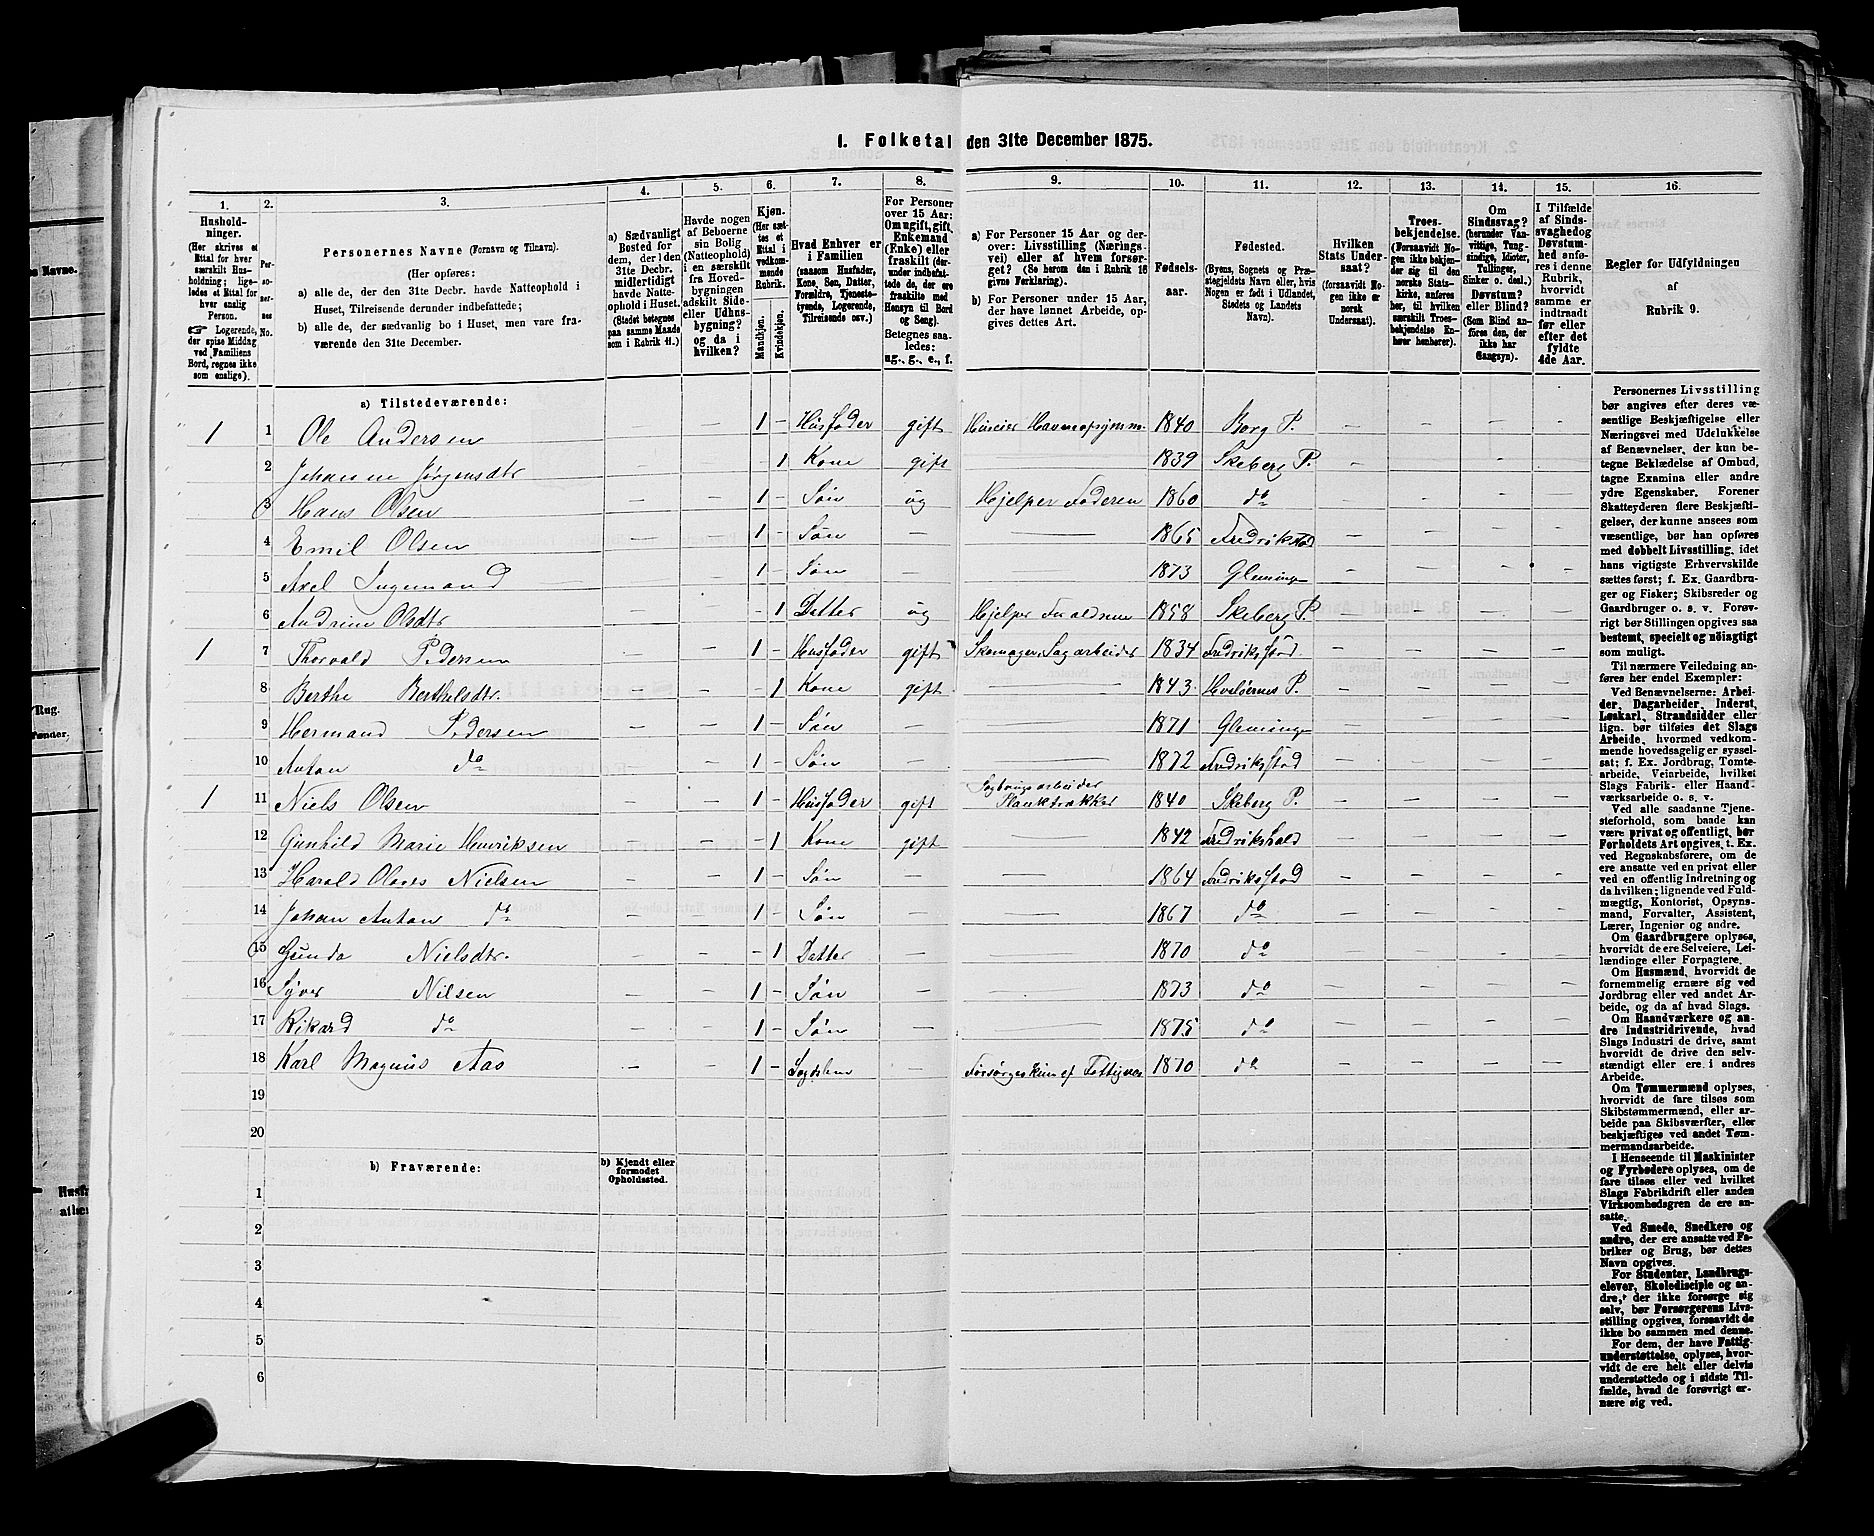 1. Folketal den 31te December 1875.
1. 2. 3. 4. 5. 6. 7. 8. 9. 10. 11. 12. 13. 14. 15. 16.
Husholdninger.
(Her skrives et Ettal for hver særskilt Husholdning; ligeledes et Ettal for hver enslig Person.
☞ Logerende, der spise Middag ved Familiens Bord, regnes ikke som enslige).
Personernes No.
Personernes Navne (Fornavn og Tilnavn).
(Her opføres:
a) alle de, der den 31te Decbr. havde Natteophold i Huset, Tilreisende derunder indbefattede;
b) alle de, der sædvanlig bo i Huset, men vare fraværende den 31te December.
a) Sædvanligt Bosted for dem, der den 31te Decbr. midlertidigt havde Natteophold i Huset. (Stedet betegnes paa samme Maade som i Rubrik 11.)
Havde nogen af Beboerne sin Bolig (Natteophold) i en særskilt fra Hovedbygningen adskilt Side- eller Udhusbygning? og da i hvilken?
Kjøn. (Her sættes et Ettal i vedkommende Rubrik.
Mandkjøn. Kvindekjøn.
Hvad Enhver er i Familien
(saasom Husfader, Kone, Søn, Datter, Forældre, Tjenestetyende, Logerende, Tilreisende osv.)
For Personer over 15 Aar: Om ugift, gift, Enkemand (Enke) eller fraskilt (derunder indbefattede de, der ere fraskilte med Hensyn til Bord og Seng).
Betegnes saaledes:
ug., g., e., f.
a) For Personer 15 Aar og derover: Livsstilling (Næringsvei) eller af hvem forsørget? (Se herom den i Rubrik 16 givne Forklaring).
b) For Personer under 15 Aar, der have lønnet Arbeide, opgives dettes Art.
Fødselsaar.
Fødested.
(Byens, Sognets og Præstegjeldets Navn eller, hvis Nogen er født i Udlandet, Stedets og Landets Navn).
Hvilken Stats Undersaat?
(forsaavidt Nogen ikke er norsk Undersaat).
Troesbekjendelse.
(Forsaavidt Nogen ikke bekjender sig til den norske Statskirke, anføres her, til hvilken særskilt Troesbekjendelse Enhver henhører).
Om Sindssvag? (herunder Vanvittige, Tungsindige, Idioter, Tullinger, Sinker o. desl.) Døvstum? eller Blind? (Som Blind anføres den, der ikke har Gangsyn).
I Tilfælde af Sindssvaghed og Døvstumhed anføres i denne Rubrik, hvorvidt samme er indtraadt før eller efter det fyldte 4de Aar.
Regler for Udfyldningen
af
Rubrik 9.
a) Tilstedeværende:
1 1 Ole Andersen — — 1 – Husfader gift 1840 Borg P. — — — —
2 Johanne Jørgensdtr — — – 1 Kone gift — 1839 Skeberg P. — — — —
3 Hans Olsen — — 1 – Søn ug Hjelper Faderen 1860 do — — — —
4 Emil Olsen — — 1 – Søn — — 1865 Fredrikstad — — — —
5 Axel Ingemand — — 1 – Søn — — 1873 Gleminge — — — —
6 Andrine Olsdtr — — – 1 Datter ug Hjelper 1858 Skeberg P. — — — —
1 7 Thorvald Pedersen — — 1 – Husfader gift Skomager, Sagarbeider 1834 Fredriksstad — — — —
8 Berthe Berthelsdtr. — — – 1 Kone gift — 1843 Hvaløernes P. — — — —
9 Hermand Pedersen — — 1 – Søn — — 1871 Gleminge — — — —
10 Anton do — — 1 – Søn — — 1872 Fredriksstad — — — —
1 11 Niels Olsen — — 1 – Husfader gift Sagbrugsarbeider Plankdrakker 1840 Skeberg P. — — — —
12 Gunhild Marie Henriksen — — – 1 Kone gift — 1842 Fredrikshald — — — —
13 Harald Olaves Nielsen — — 1 – Søn — — 1864 Fredriksstad — — — —
14 Johan Anton do — — 1 – Søn — — 1867 do — — — —
15 Gunda Nielsdtr. — — – 1 Datter — — 1870 do — — — —
16 Syver Nilsen — — 1 – Søn — — 1873 do — — — —
17 Rikard do — — 1 – Søn — — 1875 do — — — —
18 Karl Magnus Aas — — 1 – — 1870 do — — — —
19
20
b) Fraværende:
b) Kjendt eller formodet Opholdssted.
1
2
3
4
5
6
Personernes Livsstilling
bør angives efter deres væ-
sentlige Beskjæftigelse eller
Næringsvei med Udelukkelse
af Benævnelser, der kun be-
tegne Beklædelse af Ombud,
tagne Examina eller andre
ydre Egenskaber. Forener
Skatteyderen flere Beskjæfti-
gelser, der kunne ansees som
væsentlige, bør han opføres
med dobbelt Livsstilling, idet
hans vigtigste Erhvervskilde
sættes først; f. Ex. Gaardbru-
ger og Fisker; Skibsreder og
Gaardbruger o. s. v. Forøv-
rigt bør Stillingen opgives saa
bestemt, specielt og nøiagtigt
som muligt.
Til nærmere Veiledning an-
føres her endel Exempler:
Ved Benævnelserne: Arbei-
der, Dagarbeider, Inderst,
Løskarl, Strandsidder eller
lign. bør tilføies det Slags
Arbeide, hvormed vedkom-
mende hovedsagelig er syssel-
sat; f. Ex. Jordbrug, Tomte-
arbeide, Veiarbeide, hvilket
Slags Fabrik- eller Haand-
værksarbeide o. s. v.
Ved alle saadanne Tjene-
steforhold, som baade kan
være privat og offentligt, bør
Forholdets Art opgives, t. Ex.
ved Regnskabsførere, om de
ere ansatte ved en privat eller
ved en offentlig Indretning og
da hvilken; lignende ved Fuld-
mægtig, Kontorist, Opsyns-
mand, Forvalter, Assistent,
Lærer, Ingeniør og andre.
Om Gaardbrugere oplyses,
hvorvidt de ere Selveiere, Lei-
lændinge eller Forpagtere.
Om Husmænd, hvorvidt de
fornemmelig ernære sig ved
Jordbrug eller ved andet Ar-
beide, og da af hvad Slags.
Om Haandværkere og an-
dre Industridrivende, hvad
Slags Industri de drive, samt
hvorvidt de drive den selv-
stændigt eller ere i andres
Arbeide.
Om Tømmermænd oplyses,
hvorvidt de fare tilsøs som
Skibstømmermænd, eller ar-
beide paa Skibsværfter, eller
beskjæftiges ved andet Tøm-
mermandsarbeide.
I Henseende til Maskinister
og Fyrbødere oplyses, om de
fare tilsøs eller ved hvilket
Slags Fabrikdrift eller anden
Virksomhedsgren de ere an-
satte.
Ved Smede, Snedkere og
andre, der ere ansatte ved Fa-
briker og Brug, bør dettes
Navn opgives.
For Studenter, Landbrugs-
elever, Skoledisciple og an-
dre, der ikke forsørge sig
selv, bør Forsørgerens Livs-
stilling opgives, forsaavidt de
ikke bo sammen med denne.
For dem, der have Fattig-
understøttelse, oplyses, hvor-
vidt de ere helt eller delvis
understøttede og i sidste Til-
fælde, hvad de forøvrigt er-
nære sig ved.